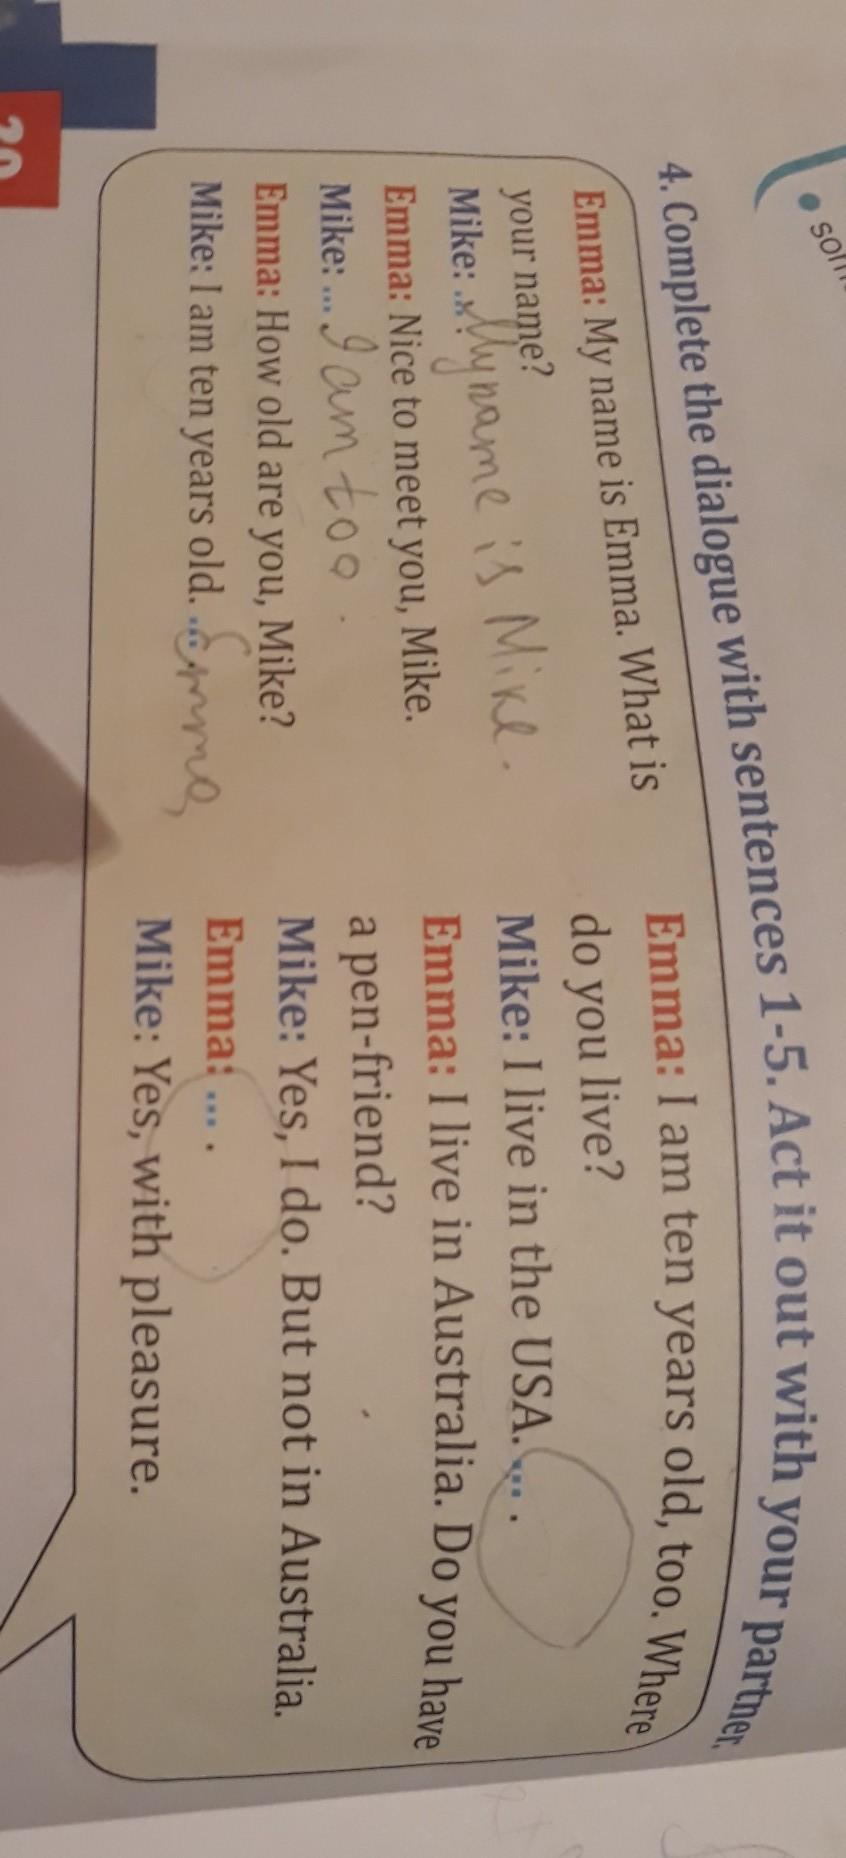 4. Complete the dialogue with sentences 1-5. Act it out with your partner.
Emma: My name is Emma. What is
your name?
Mike: ... My name is Mike.
Emma: Nice to meet you, Mike.
Mike: ... I am too.
Emma: How old are you, Mike?
Mike: I am ten years old. ... Emma,
Emma: I am ten years old, too. Where
do you live?
Mike: I live in the USA. ... .
Emma: I live in Australia. Do you have
a pen-friend?
Mike: Yes, I do. But not in Australia.
Emma: ... .
Mike: Yes, with pleasure.